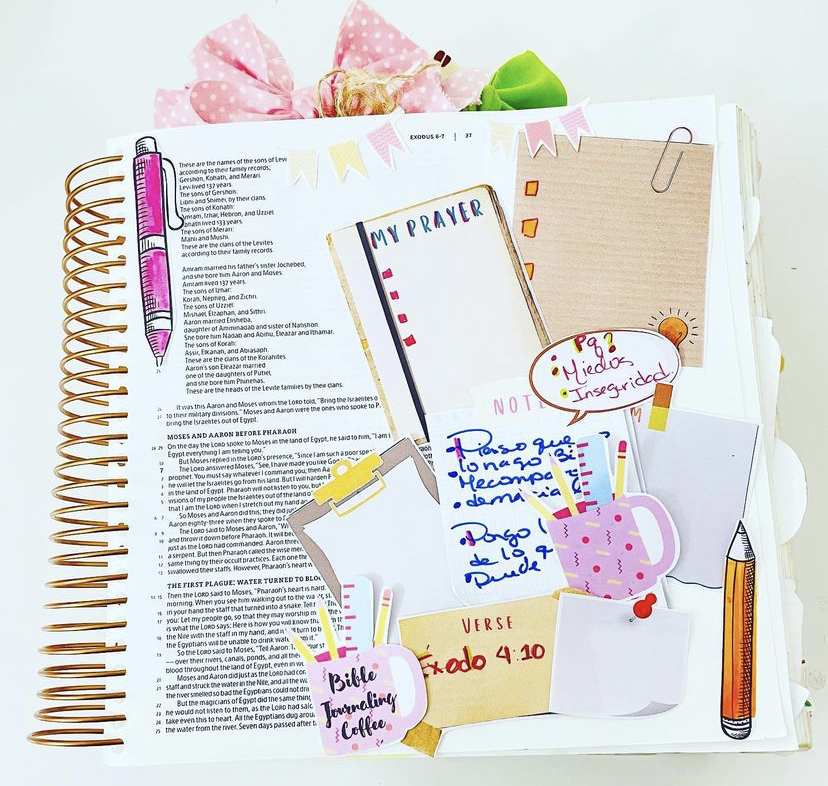 EXODUS 6-7 | 37
These are the names of the sons of Levi
according to their family records;
Gershon, Kohath, and Merari.
Levi lived 137 years.
The sons of Gershon:
Libni and Shimei, by their clans.
The sons of Kohath:
Amram, Izhar, Hebron, and Uzziel.
Kohath lived 133 years.
The sons of Merari:
Mahli and Mushi.
These are the clans of the Levites
according to their family records.
Amram married his father's sister Jochebed,
and she bore him Aaron and Moses.
Amram lived 137 years.
The sons of Izhar:
Korah, Nepheg, and Zichri.
The sons of Uzziel:
Mishael, Elzaphan, and Sithri.
Aaron married Elisheba,
daughter of Amminadab and sister of Nahshon.
She bore him Nadab and Abihu, Eleazar and Ithamar.
The sons of Korah:
Assir, Elkanah, and Abiasaph.
These are the clans of the Korahites.
25 Aaron's son Eleazar married
one of the daughters of Putiel,
and she bore him Phinehas.
These are the heads of the Levite families by their clans.
26 It was this Aaron and Moses whom the LORD told, "Bring the Israelites o
27 to their military divisions." Moses and Aaron were the ones who spoke to P
bring the Israelites out of Egypt.
MOSES AND AARON BEFORE PHARAOH
28 29 On the day the LORD spoke to Moses in the land of Egypt, he said to him, "I am t
Egypt everything I am telling you."
30 But Moses replied in the LORD's presence, "Since I am such a poor spea
7 The LORD answered Moses, "See, I have made you like God
prophet. You must say whatever I command you; then Aa
he will let the Israelites go from his land. But I will harden
in the land of Egypt. Pharaoh will not listen to you, but
visions of my people the Israelites out of the land of
that I am the LORD when I stretch out my hand ag
So Moses and Aaron did this; they did jus
Aaron eighty-three when they spoke to
The LORD said to Moses and Aaron,
and throw it down before Pharaoh. It will be
just as the LORD had commanded. Aaron thre
a serpent. But then Pharaoh called the wise men
same thing by their occult practices. Each one th
swallowed their staffs. However, Pharaoh's heart
THE FIRST PLAGUE: WATER TURNED TO BLOO
Then the LORD said to Moses, "Pharaoh's heart is hard
morning. When you see him walking out to the wa
in your hand the staff that turned into a snake. Tell
you: Let my people go, so that they may worship
is what the LORD says: Here is how you will know
the Nile with the staff in my hand, and it will turn to
the Egyptians will be unable to drink water from it."
So the LORD said to Moses, "Tell Aaron:
— over their rivers, canals, ponds, and all the
blood throughout the land of Egypt, even in
Moses and Aaron did just as the LORD had com
staff and struck the water in the Nile, and all the
the river smelled so bad the Egyptians could not drin
But the magicians of Egypt did the same thing
he would not listen to them, as the LORD had said.
take even this to heart. All the Egyptians dug aroun
the water from the river. Seven days passed after
MY PRAYER
Pq?
Miedos
Inseguridad
NOTE
Pienso que
lo hago
demasia
Pongo
de lo q
Puede
VERSE
Exodo 4:10
Bible
Journaling
Coffee